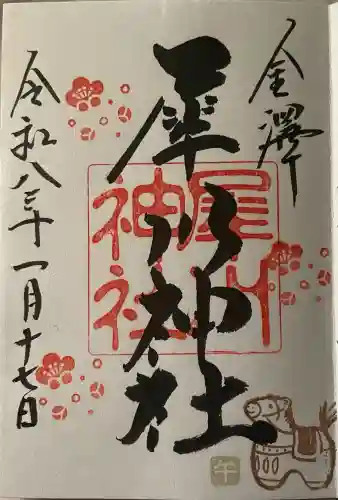 金澤
犀川神社
令和八年一月十七日
犀川
神社
午